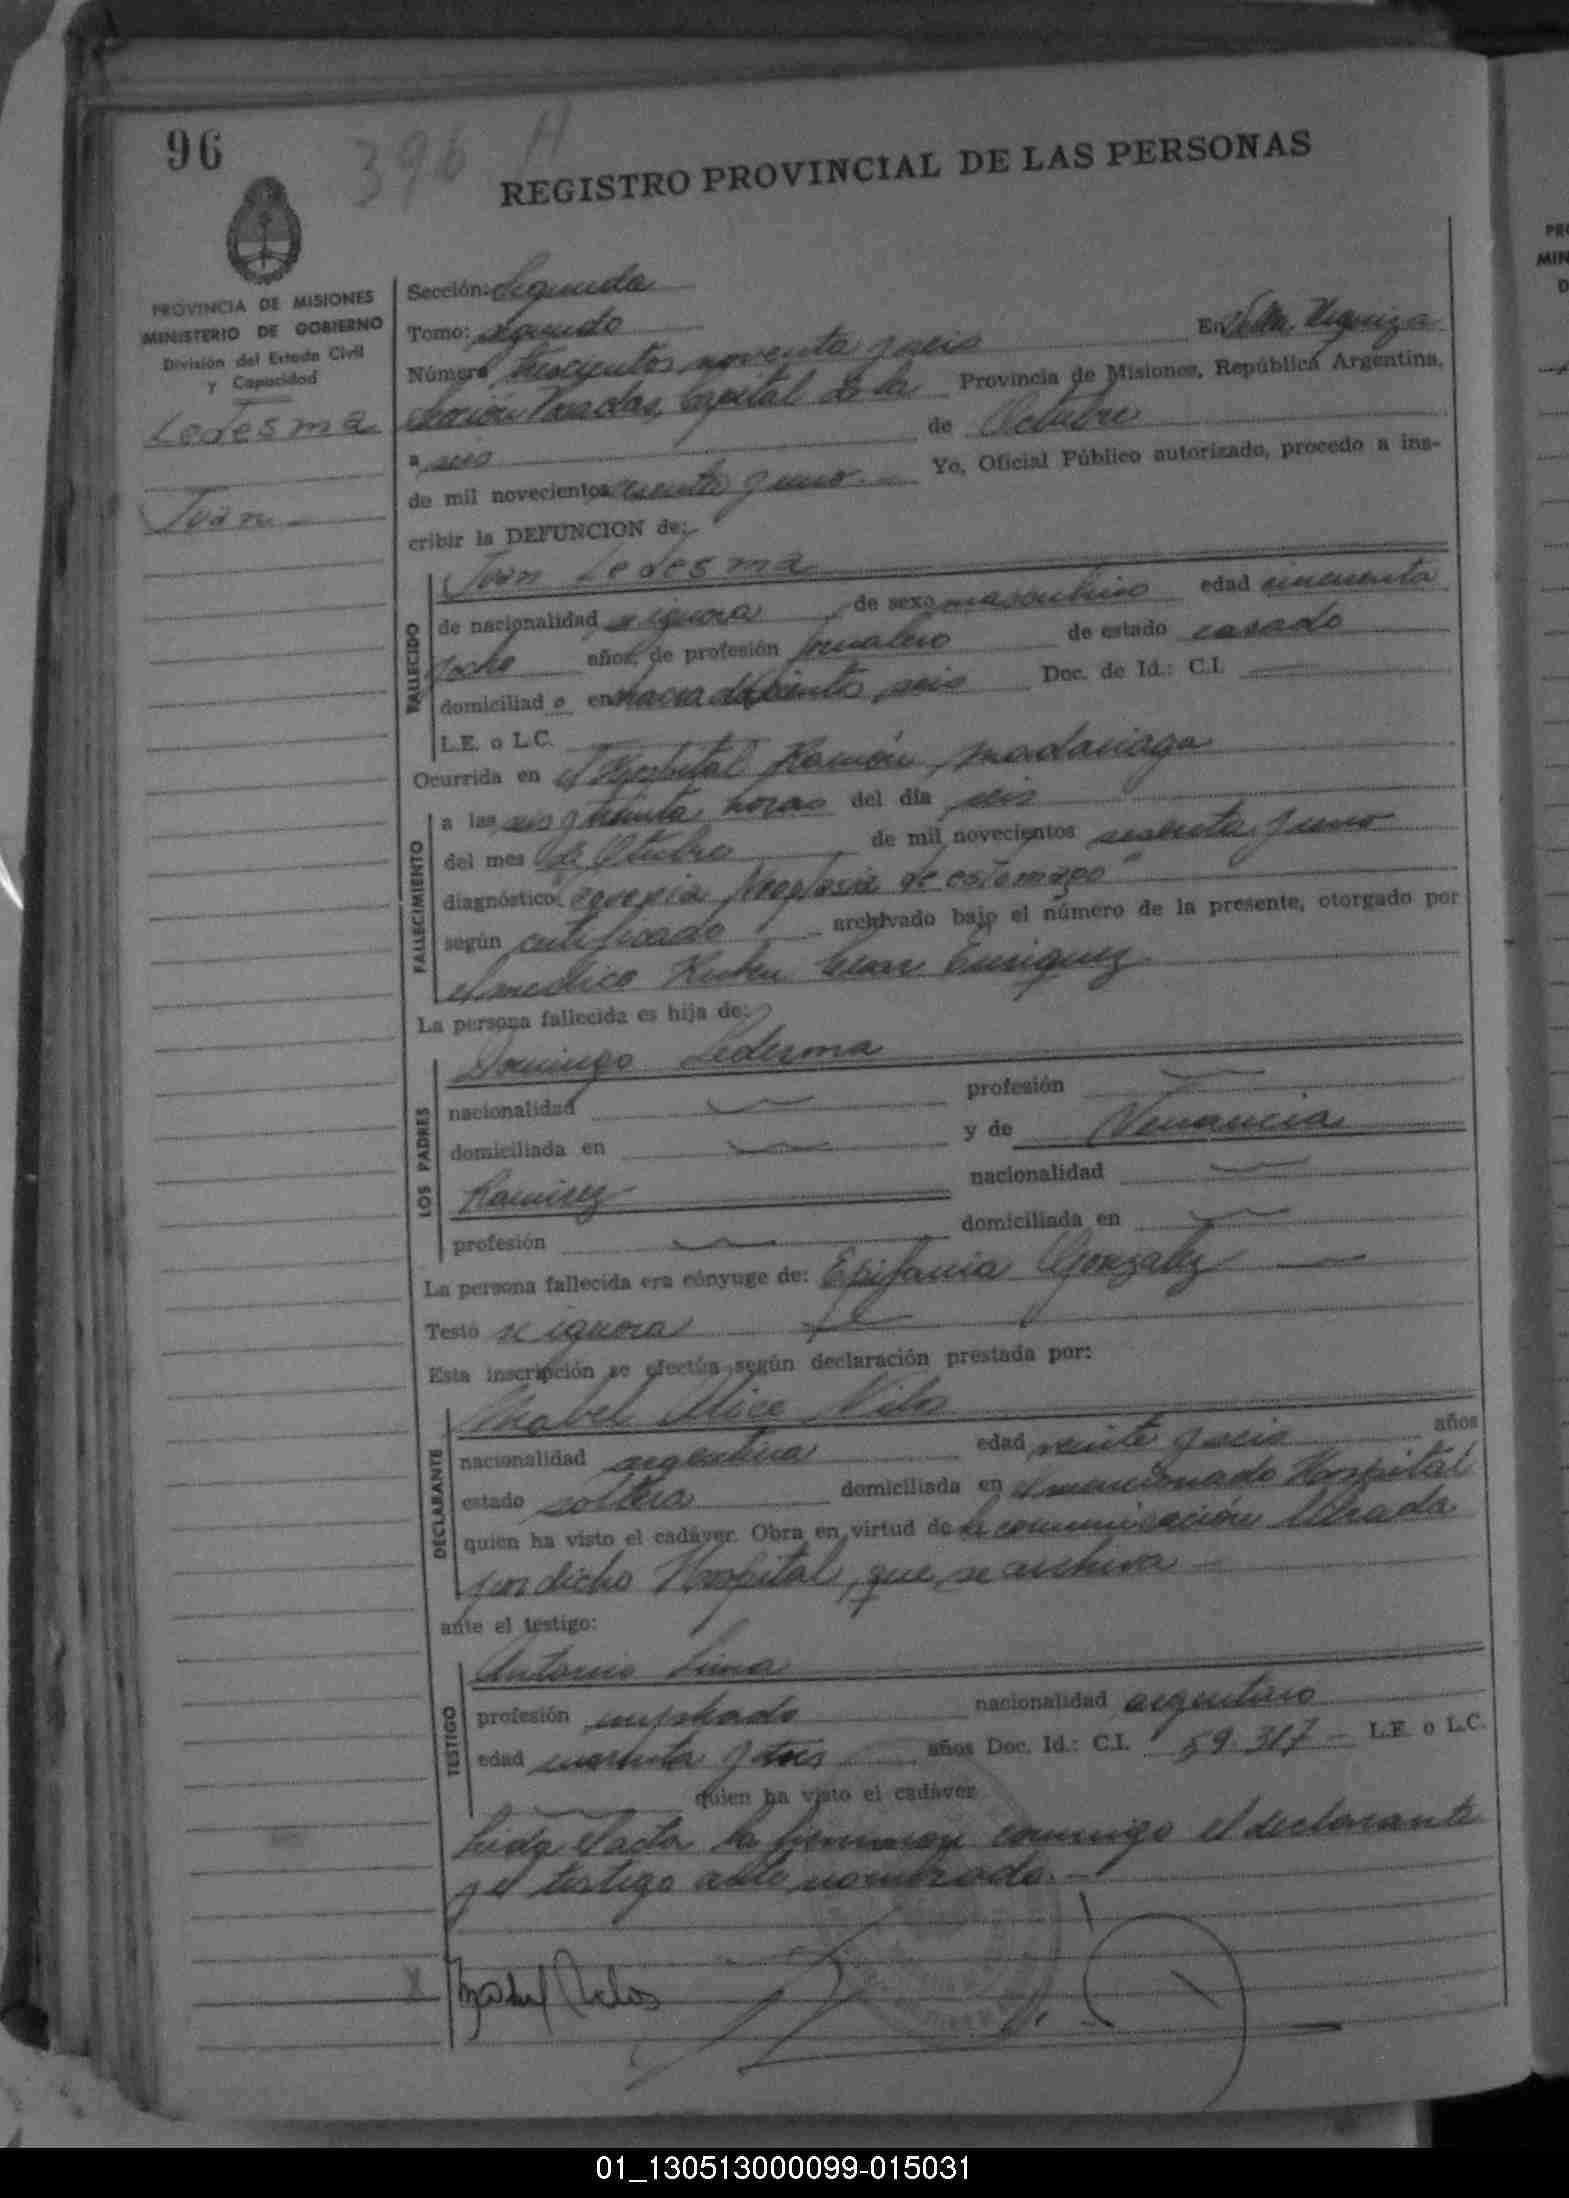 96
396 A
REGISTRO PROVINCIAL DE LAS PERSONAS
PROVINCIA DE MISIONES
MINISTERIO DE GOBIERNO
División del Estado Civil
y Capacidad
Ledesma
Juan
Sección: Segunda
Tomo: segundo
Número trescientos noventa y seis En Villa Urquiza
Sección Posadas, Capital de la Provincia de Misiones, República Argentina,
a seis de Octubre
de mil novecientos sesenta y uno.- Yo, Oficial Público autorizado, procedo a ins-
cribir la DEFUNCION de:
Juan Ledesma
FALLECIDO
de nacionalidad se ignora de sexo masculino edad cincuenta
y ocho años, de profesión jornalero de estado casado
domiciliad o en chacra doscientos seis Doc. de Id.: C.I.
L.E. o L.C.
Ocurrida en el Hospital Ramón Madariaga
FALLECIMIENTO
a las seis y treinta horas del día seis
del mes de Octubre de mil novecientos sesenta y uno
diagnóstico "Caquexia Neoplasia de estómago"
según certificado archivado bajo el número de la presente, otorgado por
el medico Ruben Cesar Enriquez
La persona fallecida es hija de:
Domingo Ledesma
LOS PADRES
nacionalidad profesión
domiciliada en y de Venancia
Ramirez nacionalidad
profesión domiciliada en
La persona fallecida era cónyuge de: Epifania Gonzalez
Testó se ignora
Esta inscripción se efectúa según declaración prestada por:
Mabel Alice
DECLARANTE
nacionalidad argentina edad veinte y seis años
estado soltera domiciliada en el mencionado Hospital
quien ha visto el cadáver. Obra en virtud de la comunicación librada
por dicho Hospital, que se archiva
ante el testigo:
Antonio Lima
TESTIGO
profesión empleado nacionalidad argentino
edad cuarenta y tres años Doc. Id.: C.I. 59.317 - L.E. o L.C.
quien ha visto el cadáver
Leida el acta la firmaron conmigo el declarante
y el testigo antes nombrado.-
01_130513000099-015031